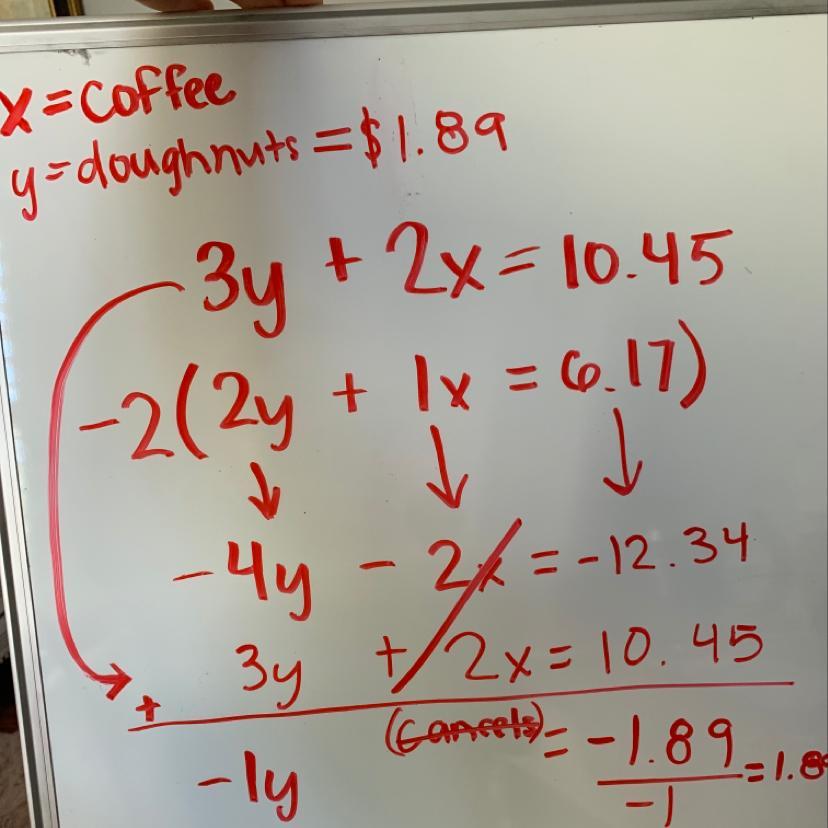 x = coffee
y = doughnuts = $1.89
3y + 2x = 10.45
-2(2y + 1x = 6.17)
-4y - 2x = -12.34
3y + 2x = 10.45
+
(cancels)
-1y = -1.89 = 1.89
-1